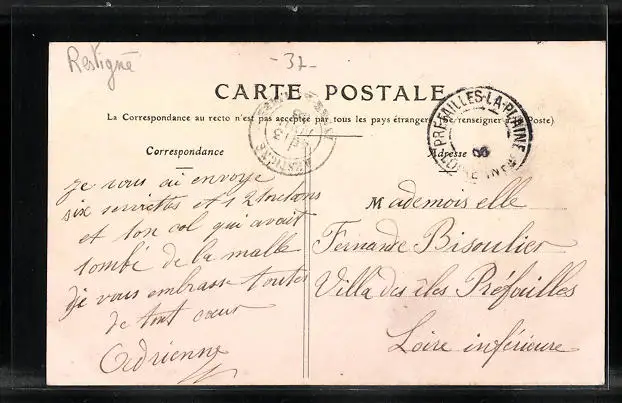 Restigné
- 37 -
CARTE POSTALE
La Correspondance au recto n'est pas acceptée par tous les pays étrangers (Se renseigner à la Poste)
RESTIGNÉ
PRÉFAILLES-LA-PLAINE
LOIRE INFRE
Correspondance
Adresse
je vous ai envoyé
six serviettes et 12 torchons
et ton col qui avait
tombé de la malle
Je vous embrasse toutes
de tout cœur
Adrienne
Mademoiselle
Fernande Bisoulier
Villa des îles Préfailles
Loire inférieure